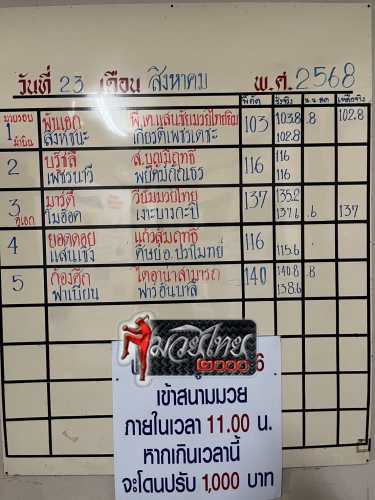 วันที่ 23 เดือน สิงหาคม พ.ศ. 2568
พิกัด ชั่งจริง น.น.ลด เหลือจริง
มวยรอบ
1 พันเอก พี.เค.แสนชัยมวยไทยยิม 103 103.8 .8 102.8
สิงห์ชนะ เกียรติเพชรเดชะ 102.8
2 บริซลี ส.บุญมีฤทธิ์ 116 116
เพชรนาวี พยัคฆ์ภัณธร 116
3 มาร์ดี วีนัมมวยไทย 137 135.2
คู่เอก โมอ๊อค เงาะบางกะปิ 137.6 .6 137
4 ยอดดอย แก้วสัมฤทธิ์ 116
แสนเชิง ศิษย์อ.ปราโมทย์ 115.6
5 ก้องศึก ไดอาน่าสามารถ 140 140.8 .8
ฟาเบียน ฟาร์อันบาลี 138.6
มวยไทย
๒๐๐๐
6
เข้าสนามมวย
ภายในเวลา 11.00 น.
หากเกินเวลานี้
จะโดนปรับ 1,000 บาท